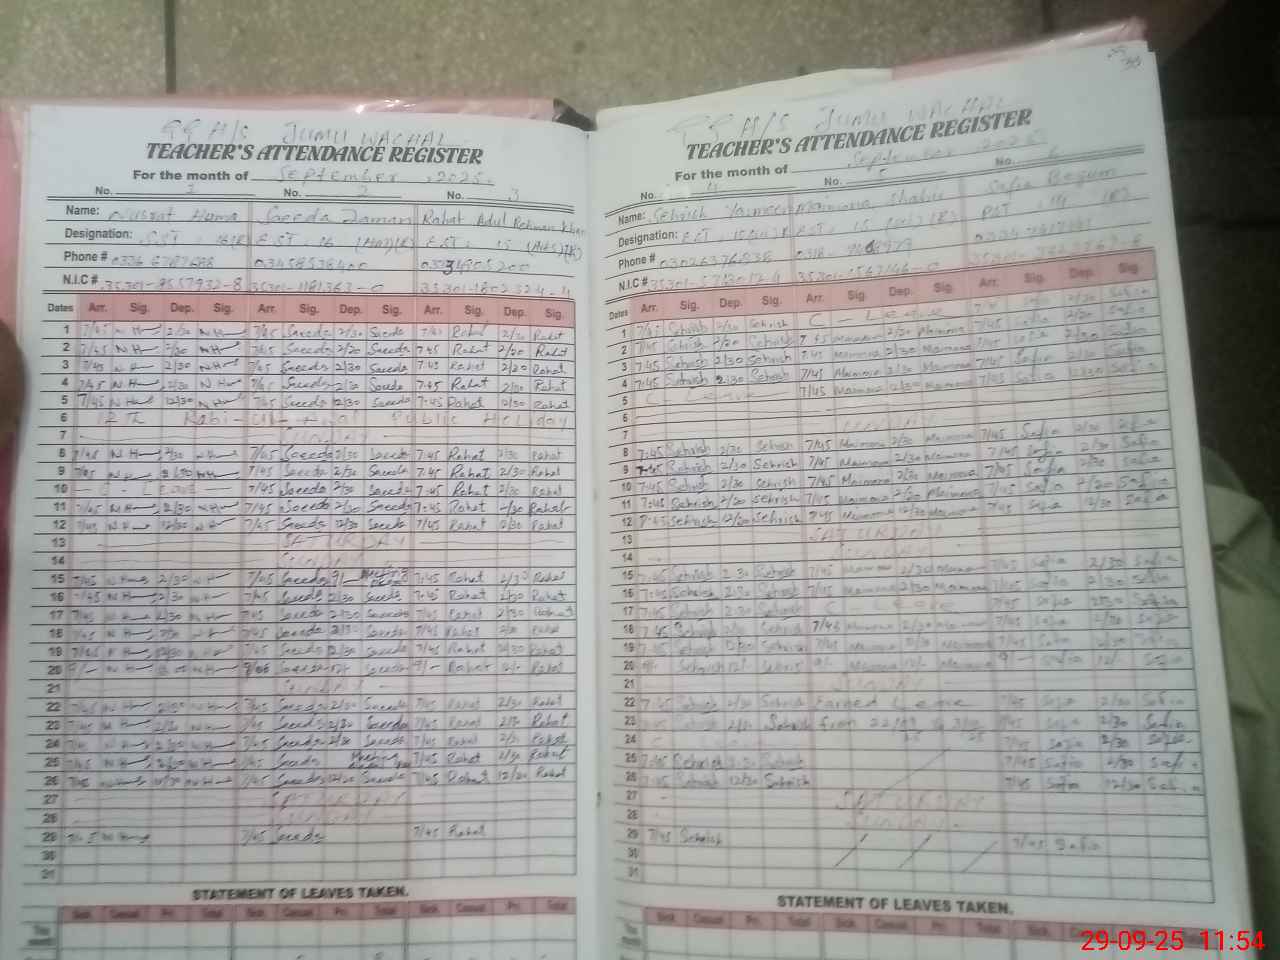 GG H/S JUMU WACHAL
TEACHER'S ATTENDANCE REGISTER
For the month of September, 2025.
No. 1 No. 2 No. 3
Name: Nusrat Huma Saeeda Zaman Rahat Adul Rehman Khan
Designation: SST 16(R) EST, 16 (R) EST, 15 (R)
Phone # 03458538400
N.I.C # 35301-8557932-8 35301-1181363-0 35301-1802324-4
Dates Arr. Sig. Dep. Sig. Arr. Sig. Dep. Sig. Arr. Sig. Dep. Sig.
1 7/45 NH 2/30 NH 7/45 Saeeda 2/30 Saeeda 7/45 Rahat 2/30 Rahat
2 7/45 NH 2/30 NH 7/45 Saeeda 2/30 Saeeda 7:45 Rahat 2/30 Rahat
3 7/45 NH 2/30 NH 7/45 Saeeda 2/30 Saeeda 7:45 Rahat 2/30 Rahat
4 7/45 NH 2/30 NH 7/45 Saeeda 2/30 Saeeda 7:45 Rahat 2/30 Rahat
5 7/45 NH 12/30 NH 7/45 Saeeda 12/30 Saeeda 7:45 Rahat 12/30 Rahat
6 12th Rabi-Ul-Awal Public Holiday
7 SUNDAY
8 7/45 NH 2/30 NH 7/45 Saeeda 2/30 Saeeda 7:45 Rahat 2/30 Rahat
9 7/45 NH 2/30 NH 7/45 Saeeda 2/30 Saeeda 7:45 Rahat 2/30 Rahat
10 C - Leave 7/45 Saeeda 2/30 Saeeda 7:45 Rahat 2/30 Rahat
11 7/45 NH 2/30 NH 7/45 Saeeda 2/30 Saeeda 7:45 Rahat 2/30 Rahat
12 7/45 NH 12/30 NH 7/45 Saeeda 12/30 Saeeda 7/45 Rahat 12/30 Rahat
13 SATURDAY
14 SUNDAY
15 7/45 NH 2/30 NH 7/45 Saeeda 9/- Meeting 7:45 Rahat 2/30 Rahat
16 7/45 NH 2/30 NH 7/45 Saeeda 2/30 Saeeda 7:45 Rahat 2/30 Rahat
17 7/45 NH 2/30 NH 7/45 Saeeda 2/30 Saeeda 7/45 Rahat 2/30 Rahat
18 7/45 NH 2/30 NH 7/45 Saeeda 2/30 Saeeda 7/45 Rahat 2/30 Rahat
19 7/45 NH 12/30 NH 7/45 Saeeda 12/30 Saeeda 7/45 Rahat 12/30 Rahat
20 9/- NH NH Saeeda 12/- Saeeda 9/- Rahat 12/- Rahat
21 SUNDAY
22 7/45 NH 2/30 NH 7/45 Saeeda 2/30 Saeeda 7/45 Rahat 2/30 Rahat
23 7/45 NH 2/30 NH 7/45 Saeeda 2/30 Saeeda 7/45 Rahat 2/30 Rahat
24 7/45 NH 2/30 NH 7/45 Saeeda 2/30 Saeeda 7/45 Rahat 2/30 Rahat
25 7/45 NH 2/30 NH 7/45 Saeeda Meeting 7/45 Rahat 2/30 Rahat
26 7/45 NH 12/30 NH 7/45 Saeeda 12/30 Saeeda 7/45 Rahat 12/30 Rahat
27 SATURDAY
28 SUNDAY
29 7/45 NH 7/45 Saeeda 7/45 Rahat
30
31
STATEMENT OF LEAVES TAKEN.
Sick Casual Pri. Total Sick Casual Pri. Total Sick Casual Pri. Total
GG H/S JUMU WACHAL
TEACHER'S ATTENDANCE REGISTER
For the month of September 2025
No. 4 No. 5 No. 6
Name: Sehrish Yasmeen Maimona Shabir Safia Begum
Designation: EST, 15 (R) EST, 15 (R) PST, 14 (R)
Phone # 03026376838
N.I.C #
Dates Arr. Sig. Dep. Sig. Arr. Sig. Dep. Sig. Arr. Sig. Dep. Sig.
1 7/45 Sehrish 2/30 Sehrish C - Leave 7/45 Safia 2/30 Safia
2 7:45 Sehrish 2/30 Sehrish 7:45 Maimona 2/30 Maimona 7/45 Safia 2/30 Safia
3 7:45 Sehrish 2/30 Sehrish 7:45 Maimona 2/30 Maimona 7/45 Safia 2/30 Safia
4 7:45 Sehrish 2:30 Sehrish 7/45 Maimona 2/30 Maimona 7/45 Safia 2/30 Safia
5 C - Leave 7/45 Maimona 12/30 Maimona 7/45 Safia 12/30 Safia
6
7 SUNDAY
8 7:45 Sehrish 2/30 Sehrish 7/45 Maimona 2/30 Maimona 7/45 Safia 2/30 Safia
9 7:45 Sehrish 2/30 Sehrish 7/45 Maimona 2/30 Maimona 7/45 Safia 2/30 Safia
10 7:45 Sehrish 2/30 Sehrish 7/45 Maimona 2/30 Maimona 7/45 Safia 2/30 Safia
11 7:45 Sehrish 2/30 Sehrish 7/45 Maimona 2/30 Maimona 7/45 Safia 2/30 Safia
12 7:45 Sehrish 12/30 Sehrish 7/45 Maimona 12/30 Maimona 7/45 Safia 12/30 Safia
13 SATURDAY
14 SUNDAY
15 7:45 Sehrish 2:30 Sehrish 7/45 Maimona 2/30 Maimona 7/45 Safia 2/30 Safia
16 7:45 Sehrish 2:30 Sehrish 7/45 Maimona 2/30 Maimona 7/45 Safia 2/30 Safia
17 7:45 Sehrish 2:30 Sehrish C - Leave 7/45 Safia 2/30 Safia
18 7:45 Sehrish 2/30 Sehrish 7/45 Maimona 2/30 Maimona 7/45 Safia 2/30 Safia
19 7:45 Sehrish 12/30 Sehrish 7/45 Maimona 12/30 Maimona 7/45 Safia 12/30 Safia
20 9/- Sehrish 12/- Sehrish 9/- Maimona 12/- Maimona 9/- Safia 12/- Safia
21 SUNDAY
22 7:45 Sehrish 2/30 Sehrish Earned Leave 7/45 Safia 2/30 Safia
23 Sehrish 2/30 Sehrish from 22/09 to 7/45 Safia 2/30 Safia
24 C Leave 7/45 Safia 2/30 Safia
25 7:45 Sehrish 2:30 Sehrish 7/45 Safia 2/30 Safia
26 7:45 Sehrish 12/30 Sehrish 7/45 Safia 12/30 Safia
27 SATURDAY
28 SUNDAY
29 7/45 Sehrish 7/45 Safia
30
31
STATEMENT OF LEAVES TAKEN.
Sick Casual Pri. Total Sick Casual Pri. Total Sick Casual Pri. Total
29-09-25 11:54